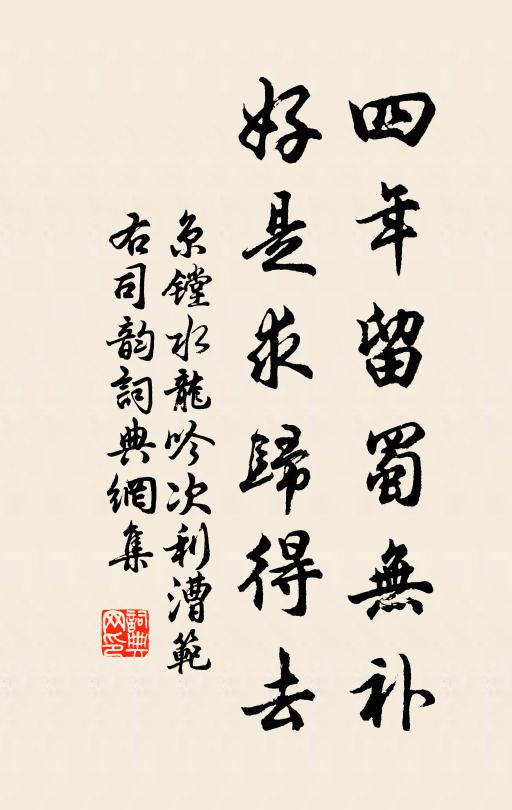 四年留蜀無补
好是求歸得去
京鏜水龍吟次利漕範
右司韵詞典網集
詞典网印